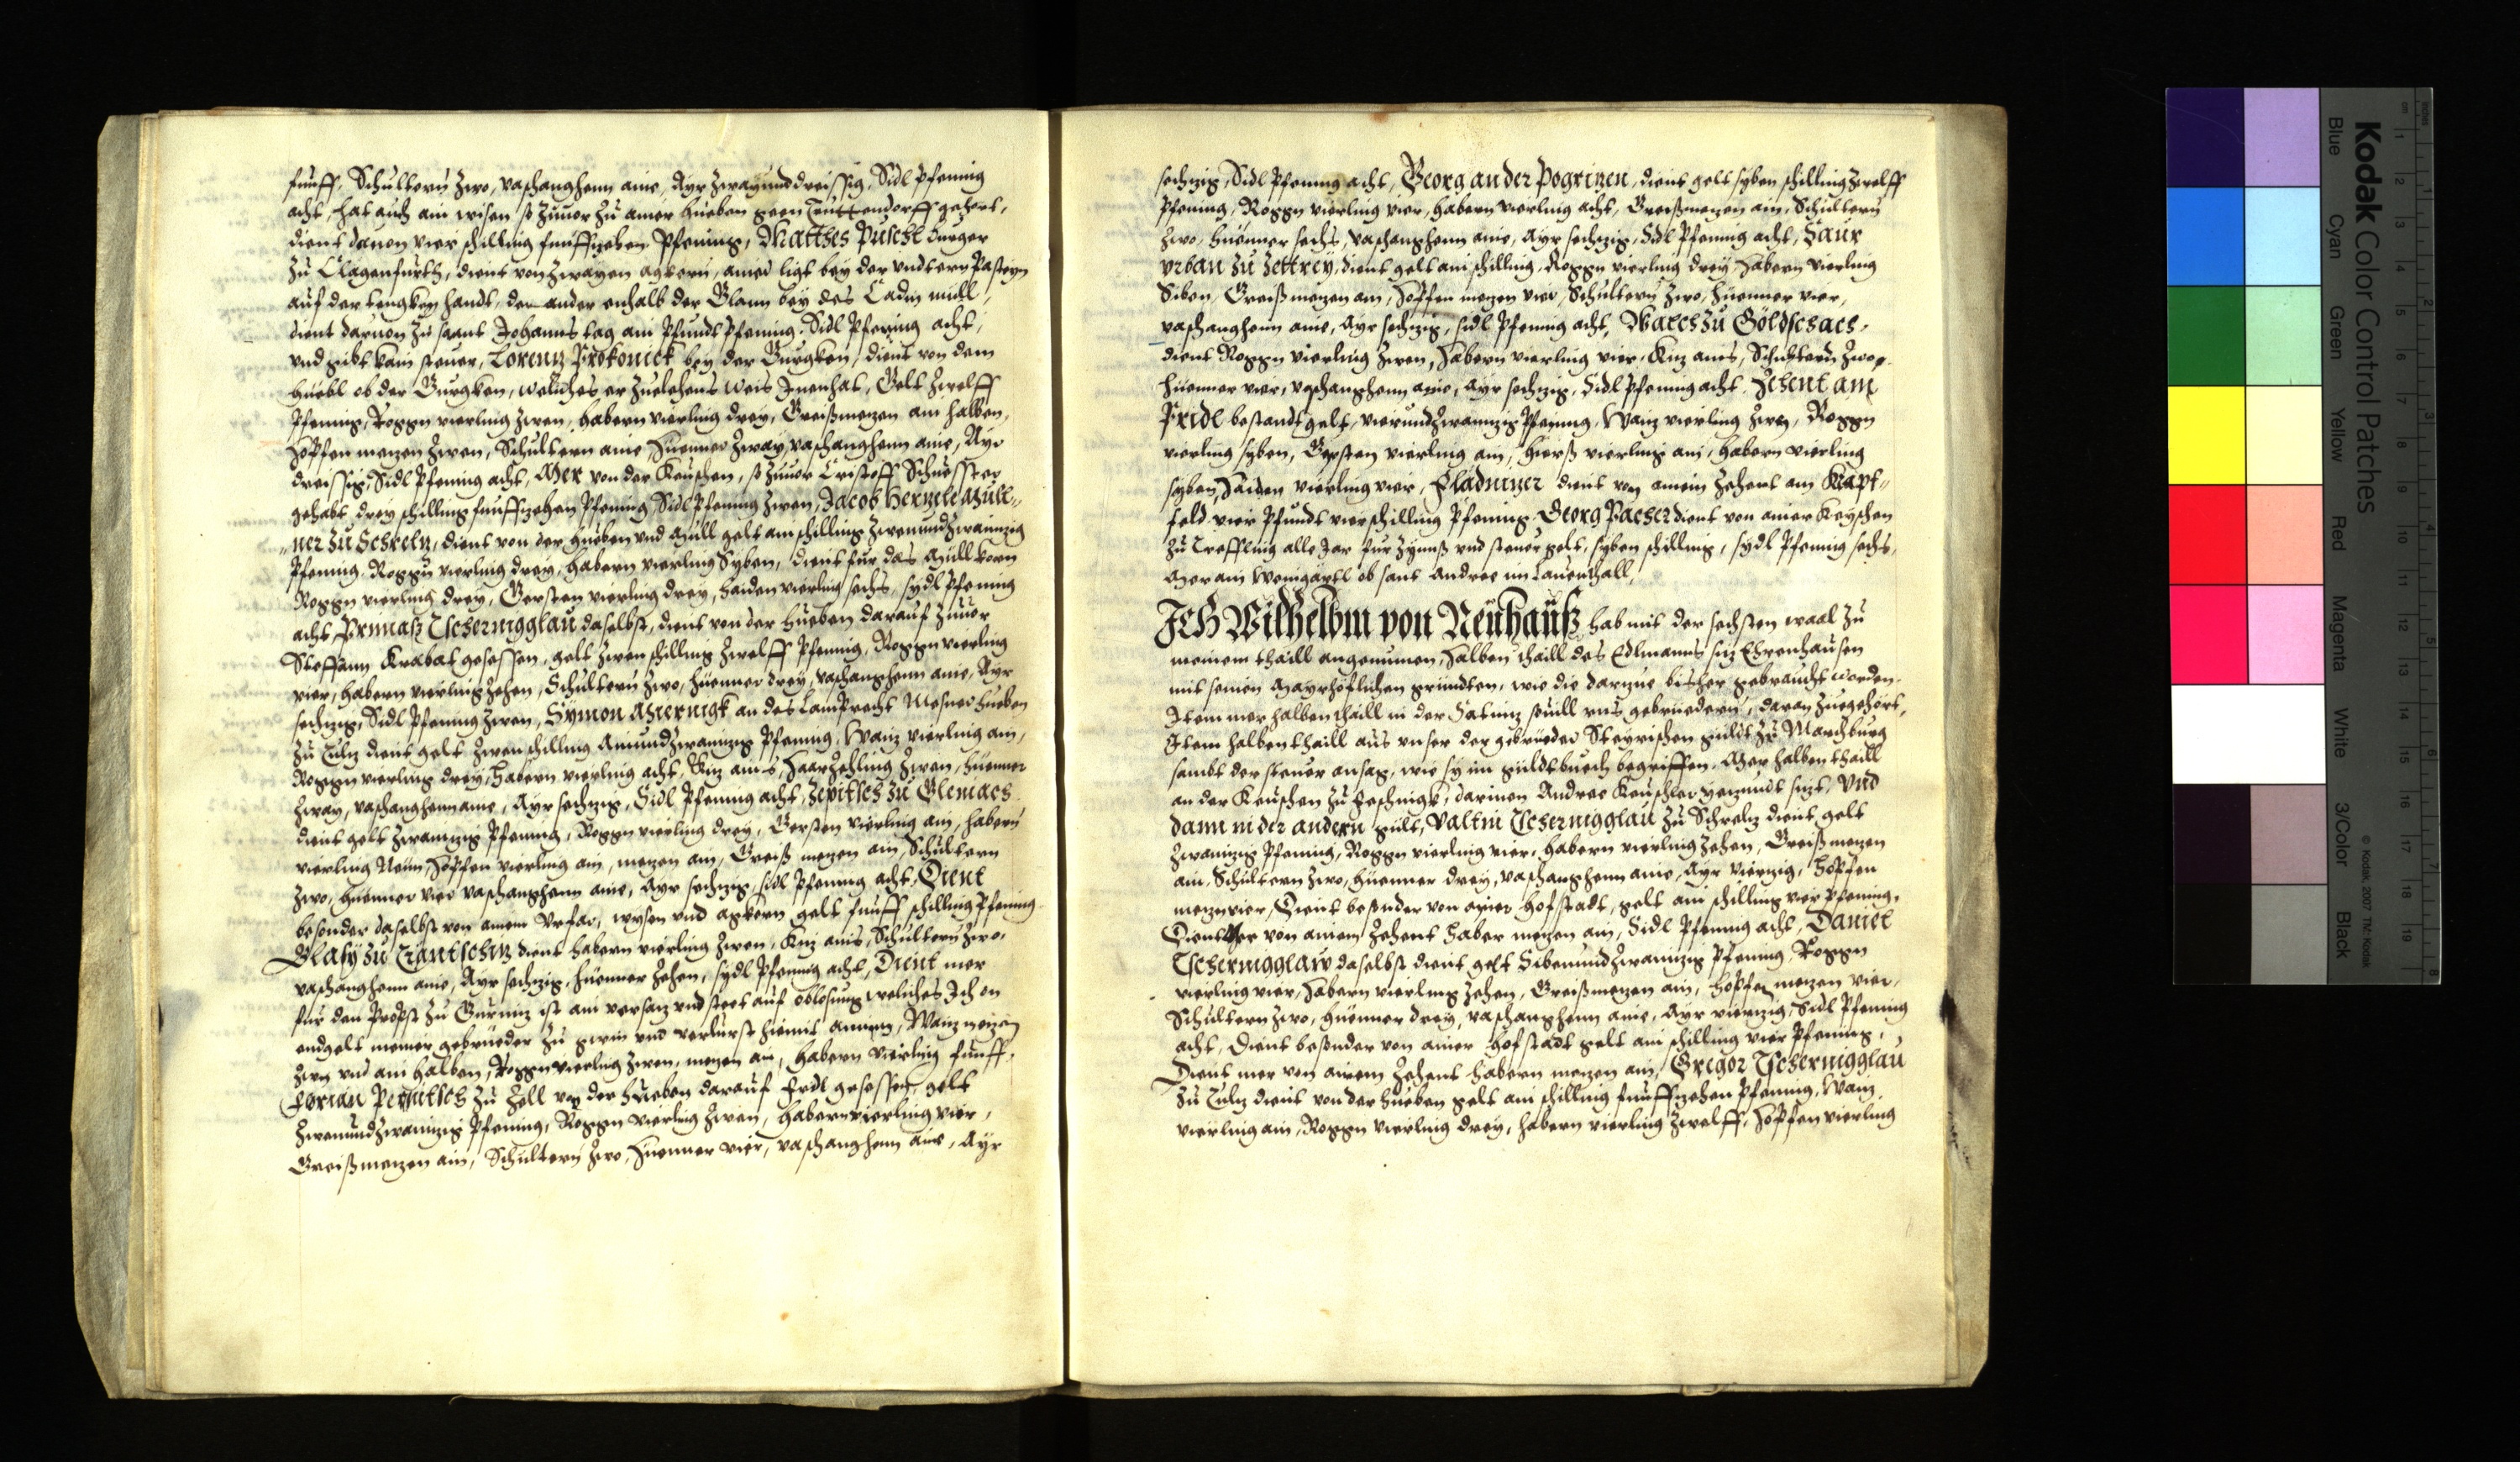 fünff, Schultern zwo, vaschanghenn aine, Ayr zwayunddreissig, Sidl pfening
acht, hat auch ain wisen so zuuor zu ainer hueben geen Truttendorff gehört,
dient dauon vier schilling fünffzehen pfening, Matthes Püschl burger
zu Clagenfurth, dient von zwayen agkern, ainer ligt bey der vndtern Pasteyn
auf der tengken handt, der ander enhalb der Glann bey des Ladin müll,
dient daruon zu sannt Johanns tag ain pfundt pfening, Sidl pfening acht,
vnd gibt kain steuer, Lorentz Prokonick bey der Gurgken, dient von dem
hüebl ob der Gurgken, welches er zuelehens weis Innenhat, Gelt zwelff
pfening, Roggn vierling zwen, habern vierling drey, Greißmetzen ain halben,
Hopffen metzen zwen, Schultern aine, Huenner zway, vaschanghenn aine, Ayr
dreissig, Sidl pfening acht, Mer von der Keuschen, so zuuor Cristoff Schuesster
gehabt drey schilling fünffzehen pfening, Sidl pfening zwen, Jacob Hertzele Müll-
-ner zu Schreltz, dient von der hueben vnd Müll gelt ain schilling zwenundzwainzig
pfening, Roggn vierling drey, habern vierling Syben, dient für das Müllkorn
Roggn vierling drey, Gersten vierling drey, haiden vierling sechs, sydl pfening
acht, Primaß Tschernigglau daselbst, dient von der hueben darauf zuuor
Steffann Krabat gesessen, gelt zwen schilling zwelff pfening, Roggn vierling
vier, habern vierling zehen, Schultern zwo, hüenner drey, vaschanghenn aine, Ayr
sechzig, Sidl pfening zwen, Symon Miernigk an des Lamprecht Mesner hueben
zu Tultz dient gelt zwen schilling Ainundzwainzig pfening, Waitz vierling ain,
Roggn vierling drey, Habern vierling acht, Kitz ains, Haarzehling zwen, hüenner
zway, vaschanghenn aine, Ayr sechzig, Sidl pfening acht, Zepitsch zu Glemach
dient gelt zwainzig pfening, Roggn vierling drey, Gersten vierling ain, habern
vierling Neun, Hopffen vierling ain, metzen ain, Greiß metzen ain, Schultern
zwo, huenner vier vaschanghenn aine, Ayr sechzig, sidl pfening acht, Dient
besonder daselbst von ainem Vrfar, wysen vnd agkern gelt fünff schilling pfening
Blasy zu Trantschitz dient habern vierling zwen, Kitz ains, Schultern zwo,
vaschanghenn aine, Ayr sechzig, hüenner zehen, sydl pfening acht, Dient mer
für den Probst zu Gurnitz ist ain versatz vnd steet auf ablosung welches Ich on
endgelt meiner gebrüeder zu gwin vnd verlurst hiemit annim, Waitz metzen
zwen vnd ain halben, Roggn vierling zwen, metzen ain, habern vierling fünff,
Florian Pernitsch zu Zell von der hueben darauf Erdl gesessen, gelt
zwenundzwainzig pfening, Roggn vierling zwen, habern vierling vier,
Greißmetzen ain, Schultern zwo, Huenner vier, vaschanghenn aine, Ayr
sechzig, Sidl pfening acht, Georg an der Pogritzen, dient gelt syben schilling zwelff
pfening, Roggn vierling vier, habern vierling acht, Greißmetzen ain, Schultern
zwo, hüenner sechs, vaschanghenn aine, Ayr sechzig, Sidl pfening acht, Saur
Vrban zu Zettrey, dient gelt ain schilling, Roggn vierling drey, Habern vierling
Siben, Greißmetzen ain, Hopffen metzen vier, Schultern zwo, hüenner vier,
vaschanghenn aine, Ayr sechzig, sidl pfening acht, Malch zu Goldschach,
dient Roggn vierling zwen, Habern vierling vier, Kitz ains, Schultern zwo,
hüenner vier, vaschanghenn aine, Ayr sechzig, Sidl pfening acht, Zehent am
Pridl bestandtgelt, vierundzwainzig pfening, Waitz vierling zwen, Roggn
vierling syben, Gersten vierling ain, hierß vierling ain, habern vierling
syben, Haiden vierling vier, Fladnitzer dient von ainem Zehent am Kapf-
feld vier pfundt vier schilling pfening, Georg Pacher dient von ainer Keyschen
zu Treffling alle Jar für zynnß vnd steuer gelt, syben schilling, sydl pfening sechs,
Mer ain Weingärtl ob sant Andree im Lauenthall,
Ich Wilhelbm von Neuhauß hab mit der sechsten waal zu
meinem thaill angenumen, halben thaill des Edlmanns sitz Ehrenhausen
mit seinen Mayrhöflichen gründten, wie die darzue bisher gebraucht worden,
Item mer halben thaill in der Satnitz souill vns gebrüedern, daran zuegehört,
Item halben thaill aus vnser der gebrüeder Steyrischen güldt zu Marchburg
sambt der steuer ansag, wie sy im güldtbuech begriffen, Mer halben thaill
an der Keuschen zu Feschnigk, darinnen Andree Keuschler yetzundt sitzt, Vnd
dann in der andern gült, Valtin Tschernigglau zu Schreltz dient gelt
zwainzig pfening, Roggn vierling vier, habern vierling zehen, Greißmetzen
ain, Schultern zwo, hüenner drey, vaschanghenn aine, Ayr vierzig, Hopffen
metzen vier, Dient besonder von ainer hofstadt, gelt ain schilling vier pfening,
Dient Mer von ainem Zehent haber metzen ain, Sidl pfening acht, Daniel
Tschernigglaw daselbst dient gelt Sibenundzwainzig pfening, Roggn
vierling vier, Habern vierling zehen, Greißmetzen ain, hopffen metzen vier,
Schultern zwo, hüenner drey, vaschanghenn aine, Ayr vierzig, Sidl pfening
acht, Dient besonder von ainer hofstadt gelt ain schilling vier pfening,
Dient mer von ainem Zehent habern metzen ain, Gregor Tschernigglau
zu Tultz dient von der hueben gelt ain schilling fünffzehen pfening, Waitz
vierling ain, Roggn vierling drey, habern vierling zwelff, Hopffen vierling
Kodak Color Control Patches
Blue
Cyan
Green
Yellow
Red
Magenta
White
3/Color
Black
© Kodak, 2007 TM: Kodak